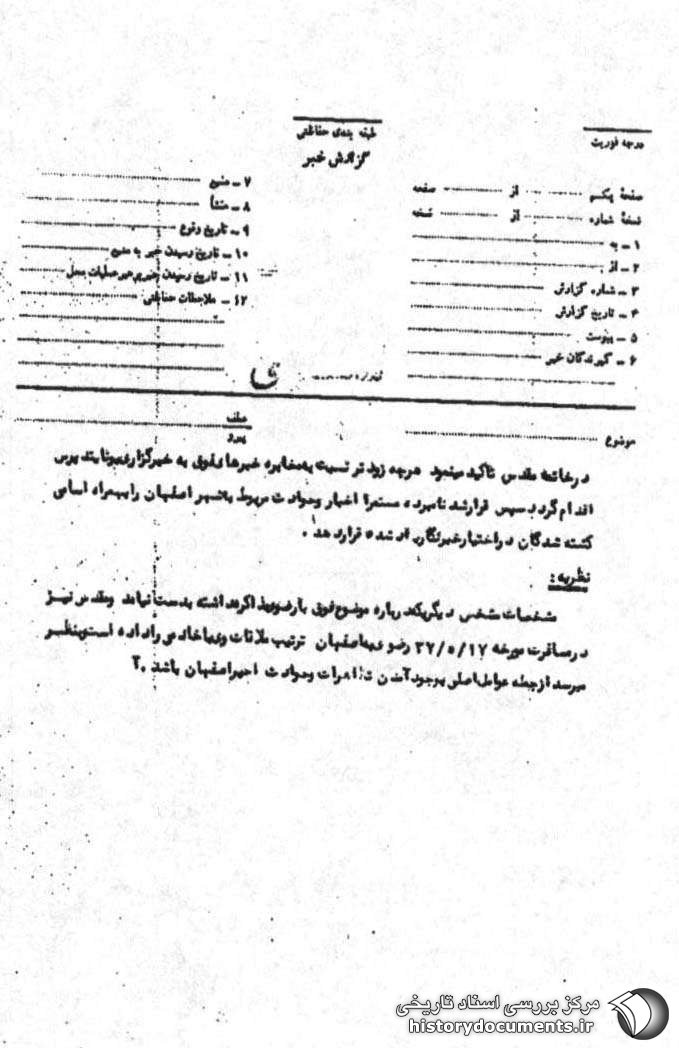 درجه فوریت
طبقه بندی حفاظتی
گزارش خبر
صفحه یکم از صفحه
نسخه شماره از نسخه
۱ - به
۲ - از
۳ - شماره گزارش
۴ - تاریخ گزارش
۵ - پیوست
۶ - گیرندگان خبر
۷ - منبع
۸ - منشأ
۹ - تاریخ وقوع
۱۰ - تاریخ رسیدن خبر به منبع
۱۱ - تاریخ رسیدن خبر به رهبر عملیات محل
۱۲ - ملاحظات حفاظتی
موضوع
عطف
پیرو
در خاتمه مقدس تاکید مینمود هرچه زودتر نسبت به مخابره خبرهای فوق به خبرگزاری یونایتدپرس
اقدام گردد سپس قرار شد نامبرده مستمرا اخبار وحوادث مربوط به شهر اصفهان را بهمراه اسامی
کشته شدگان در اختیار خبرنگار یاد شده قرار دهد .
نظریه :
مشخصات شخص دیگریکه درباره موضوع فوق با رضوی مذاکره داشته بدست نیامد ومقدس نیز
در مسافرت مورخه ۳۷/۵/۱۷ رضوی به اصفهان ترتیب ملاقات وی با خادمی را داده است وبنظر
میرسد از جمله عوامل اصلی بوجود آمدن تظاهرات وحوادث اخیر اصفهان باشد .
مرکز بررسی اسناد تاریخی
historydocuments.ir